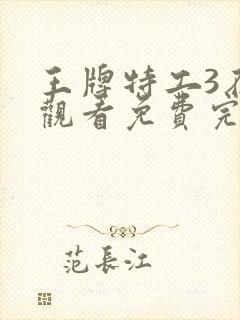 王牌特工3在
觀看免費完
范長江